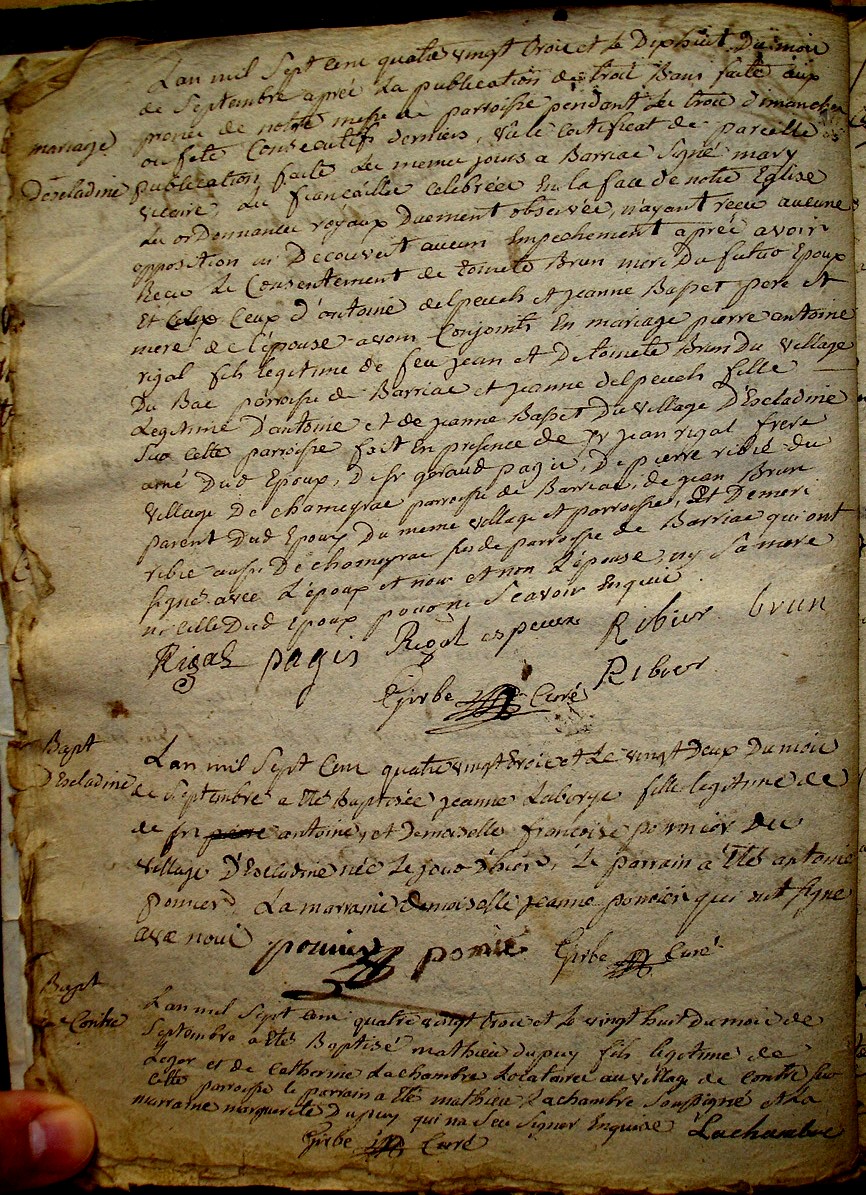 Lan mil Sept Cent quatre vingt trois et le Dixhuit Du mois
de Septembre aprés La publication de trois Bans faite aux
mariage
prones de notre messe de parroisse pendant les trois dimanches
ou fete Consecutifs derniers, vû le certificat de pareille
Descladine
publication faite les memes jours a Barriac Signé mary
vicaire, les fiancailles celebrées En la face de notre Eglise
Les ordonnances royaux Duement observée, n'ayant recu aucune
opposition ni Decouvert aucun Empechement aprés avoir
Recu Le Consentement de toinete Brun mere Du futur Epoux
Et Ceux d'antoine delpeuch et jeanne Basset pere et
mere de l'épouse avons Conjoints En mariage pierre antoine
rigal fils legitime de feu jean et De toinete Brun Du village
Du Bac parroisse de Barriac et jeanne delpeuch fille
Legitime D'antoine et de jeanne Basset Du village D'Escladine
Sur cette parroisse fait En presence de jean rigal frere
ainé Dud Epoux, De geraud pagis, De pierre ribié du
village De chameyrac parroisse de Barriac, de jean Brun
parent Dud Epoux Du meme village et parroisse, et Demeri
ribie aussi De chameyrac parroisse de Barriac qui ont
signé avec L'époux et nous et non L'épouse, ny Sa mere
ni celle Dud Epoux pour ne Scavoir Enquis
Rigal pagis Rigal Ribier brun
Girbe Curé Ribier
Bapt
D'Escladine
Lan mil Sept Cent quatre vingt trois et Le vingt Deux Du mois
de Septembre a Eté Baptisée jeanne Laborye fille legitime de
de antoine, et Demoiselle francoise pomier Du
village D'Escladine née Le jour d'hier, Le parrain a Eté antoine
pomier, La marraine Demoiselle jeanne pomier qui ont signé
avec nous pomier pomié Girbe Curé
Bapt
Contre
Lan mil Sept Cent quatre vingt trois et Le vingt huit Du mois de
Septembre a Eté Baptisé mathieu dupuy fils legitime de
Leger et de Catherine Lachambre Locataires au village de Contre sur
cette parroisse le parrain a Eté mathieu Lachambre Soussigné et La
marraine marguerite Dupuy qui na Seu Signer Enquise Lachambre
Girbe Curé